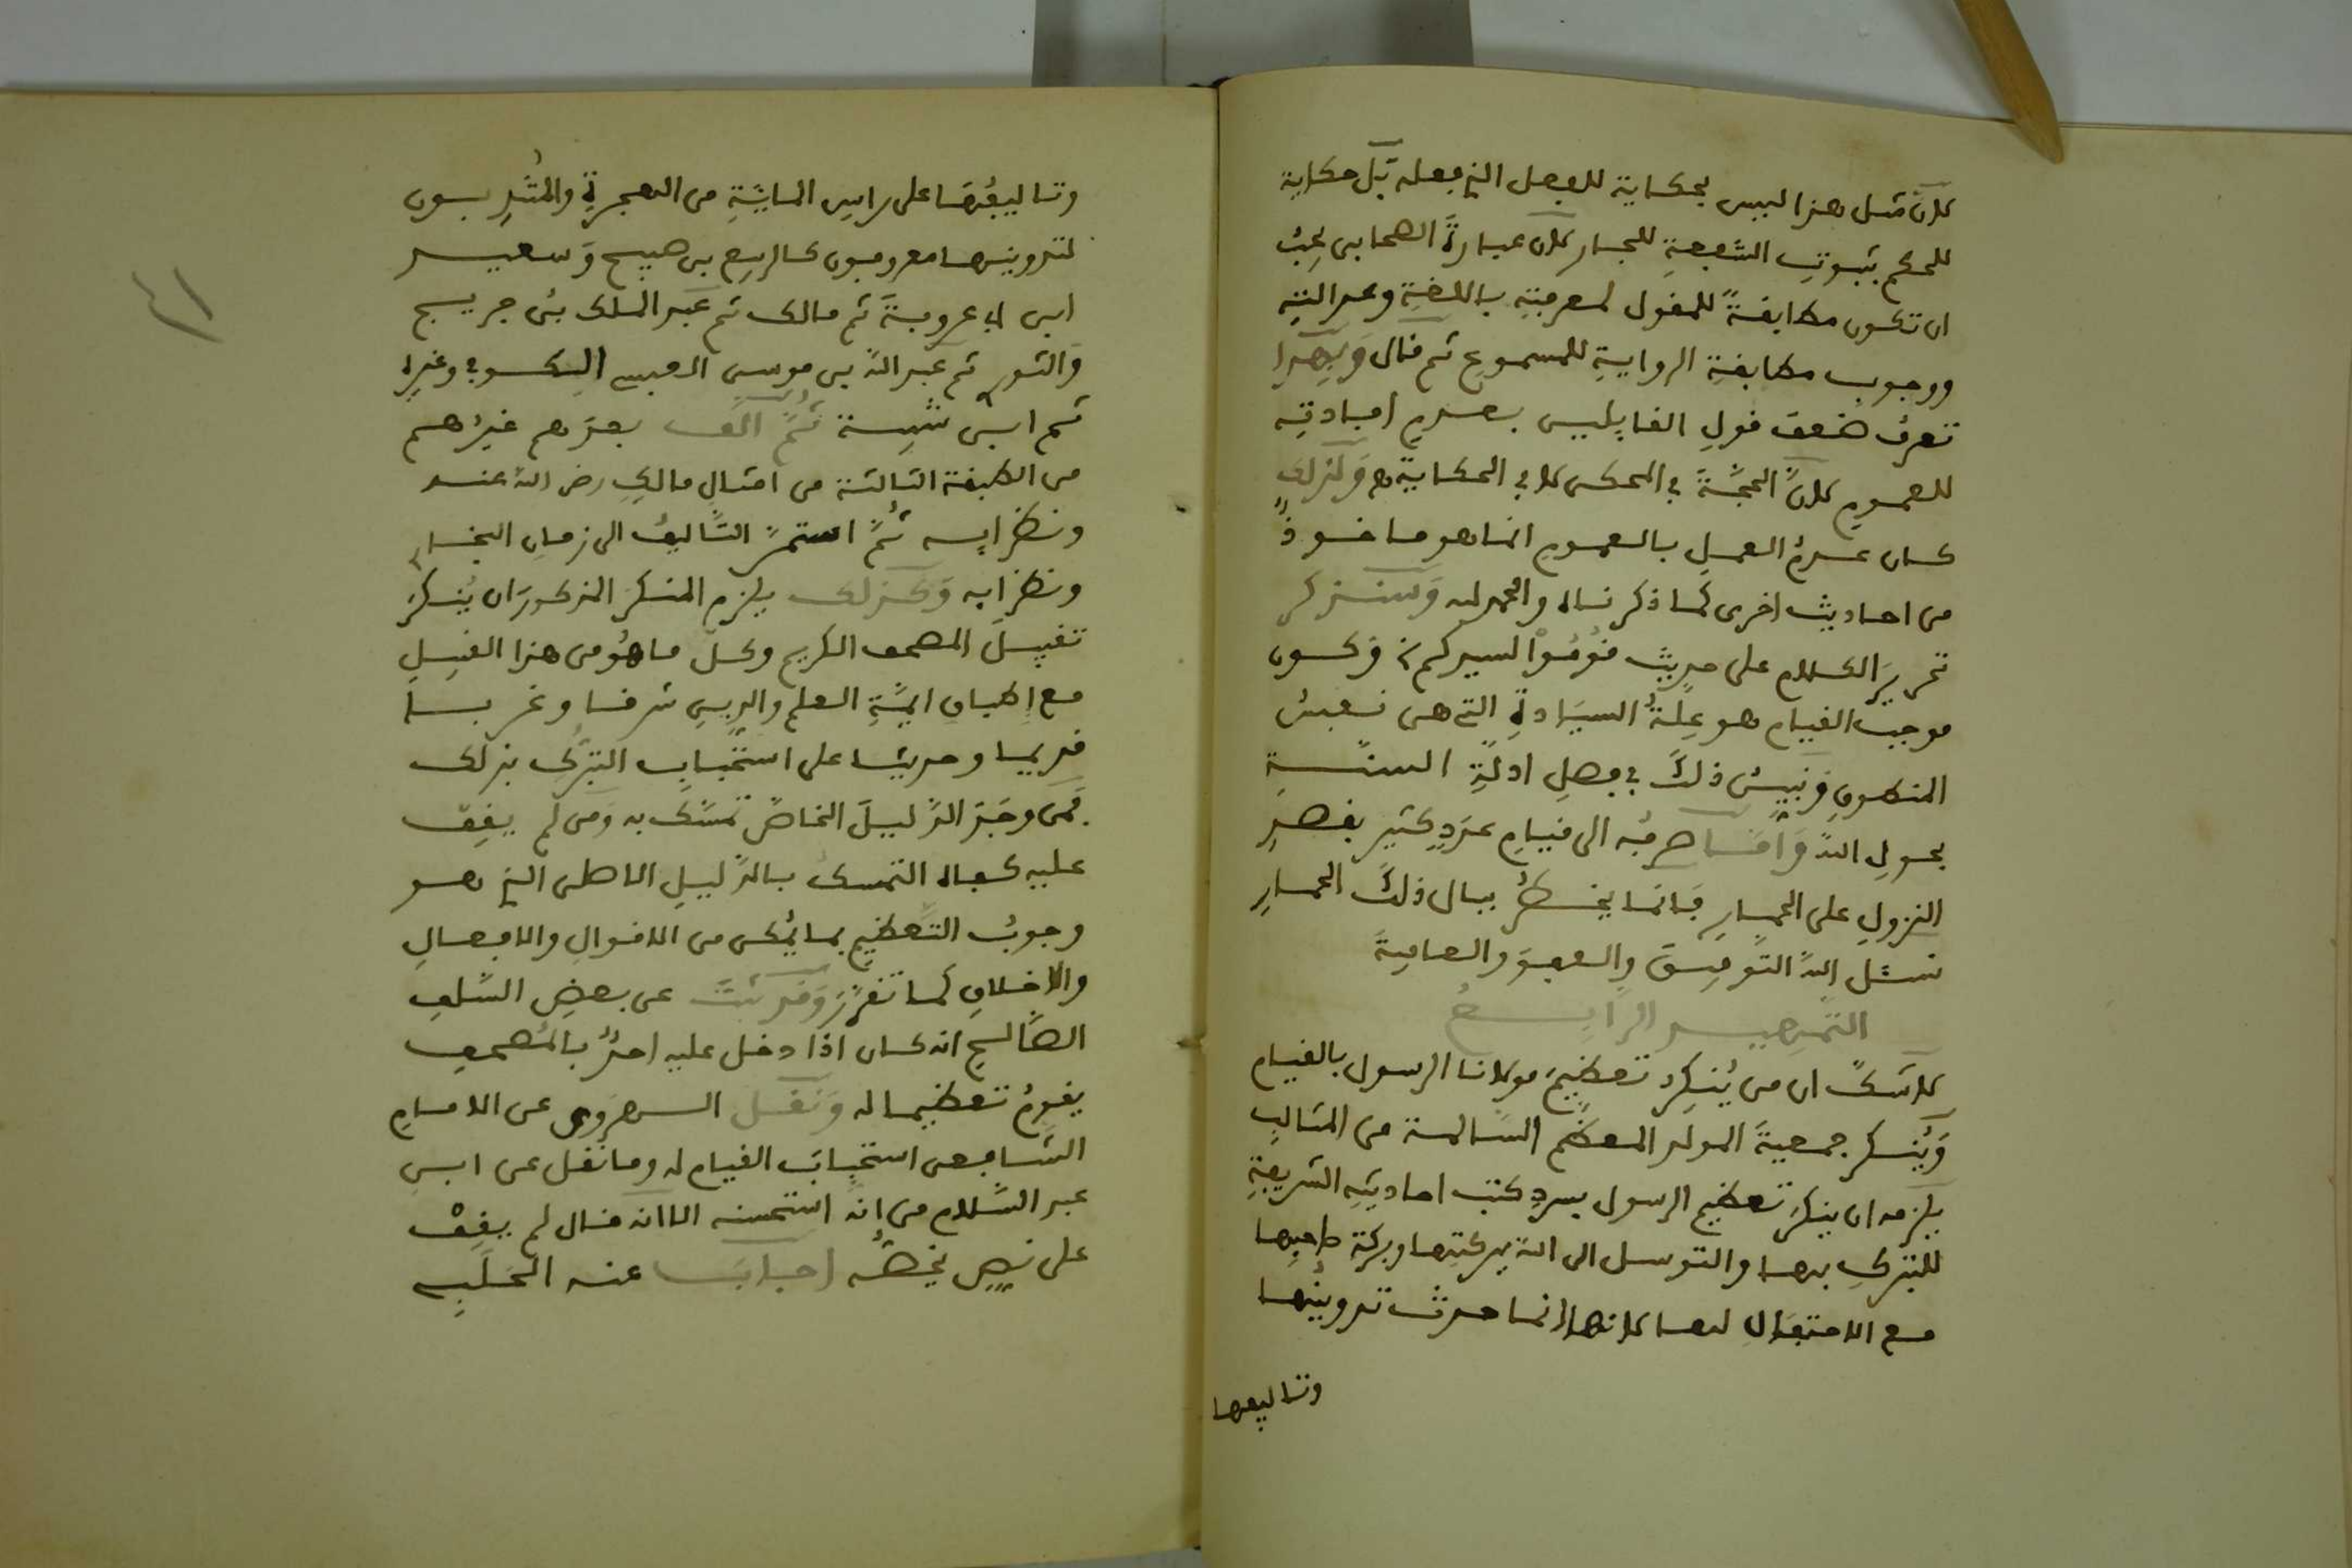 لان مثل هذا ليس بحكاية للفعل الذي فعله بل حكاية
للحكم بثبوت الشفعة للجار لان عبارة الصحابي يجب
ان تكون مطابقة للمقول لمعرفته باللغة وعدالته
ووجوب مطابقة الرواية للمسموع ثم قال وبهذا
تعرف ضعف قول القايلين بعدم افادته
للعموم لان الحجة في المحكي لا في الحكاية ه وكذلك
كان عدم العمل بالعموم انما هو ماخوذ
من احاديث اخرى كما ذكرناه والحمد لله وسنذكر
تحرير الكلام على حديث قوموا لسيدكم وكون
موجب القيام هو علة السيادة التي هي نفس
المنطوق ونبين ذلك في فصل ادلة السنة
بحول الله واما صرفه الى قيام عدد كثير بقصد
النزول على الحمار فانما يخطر ببال ذلك الحمار
نسئل الله التوفيق والعفو والعافية
التمهيد الرابع
لا شك ان من ينكر تعظيم مولانا الرسول بالقيام
وينكر جمعية المولد المعظم السالمة من المثالب
يلزمه ان ينكر تعظيم الرسول بسرد كتب احاديثه الشريفة
للتبرك بها والتوسل الى الله ببركتها وبركة صاحبها
مع الاحتفال لها لانها انما حدث تدوينها
وتاليفها
٤١
وتاليفها على راس الماية من الهجرة والمتدبون
لتدوينها معروفون كالربيع بن صبيح وسعيد
ابن ابي عروبة ثم مالك ثم عبد الملك بن جريج
والثوري ثم عبد الله بن موسى العبسي الكوفي وغيره
ثم ابن شيبة ثم الف بعدهم غيرهم
من الطبقة الثالثة من امثال مالك رضي الله عنه
ونظرايه ثم استمر التاليف الى زمان البخاري
ونظرايه وكذلك يلزم المنكر المذكور ان ينكر
تقبيل المصحف الكريم وكل ما هو من هذا القبيل
مع اطباق ايمة العلم والدين شرقا وغربا
قديما وحديثا على استحباب التبرك بذلك
فمن وجد الدليل الخاص تمسك به ومن لم يقف
عليه كفاه التمسك بالدليل الاصلي الذي هو
وجوب التعظيم بما يمكن من الاقوال والافعال
والاخلاق كما تقرر وقد ثبت عن بعض السلف
الصالح انه كان اذا دخل عليه احد بالمصحف
يقوم تعظيما له ونقل السهروي عن الامام
الشافعي استحباب القيام له وما نقل عن ابن
عبد السلام من انه استحسنه الا انه قال لم يقف
على نص يخصه اجاب عنه الحلبي